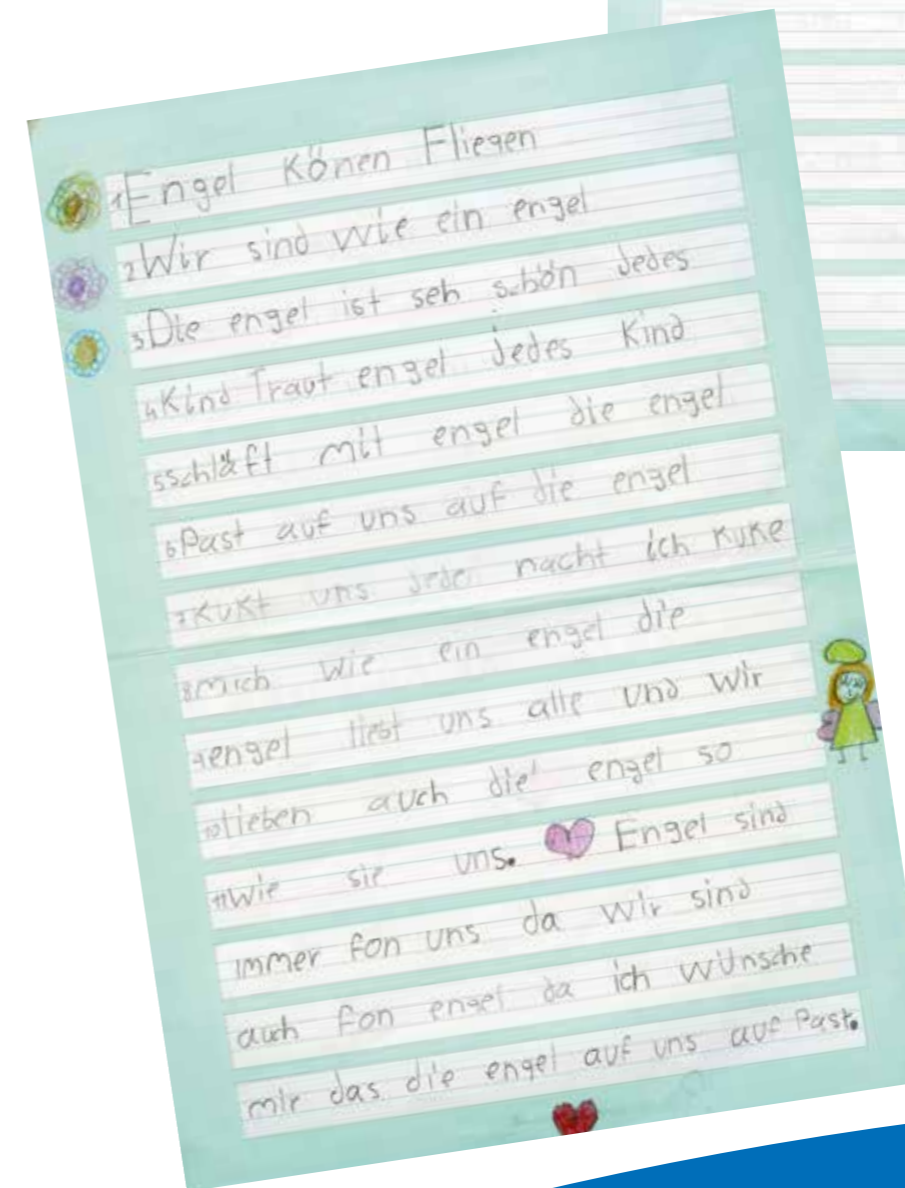 1Engel Könen Fliegen
2Wir sind wie ein engel
3Die engel ist seh schön Jedes
4Kind Traut engel Jedes Kind
5schläft mit engel die engel
6Past auf uns auf die engel
7KuKt uns Jede nacht ich KuKe
8mich wie ein engel die
9engel liest uns alle und wir
10lieben auch die engel so
11wie sie uns. Engel sind
immer fon uns da wir sind
auch fon engel da ich wünsche
mir das die engel auf uns auf Past.